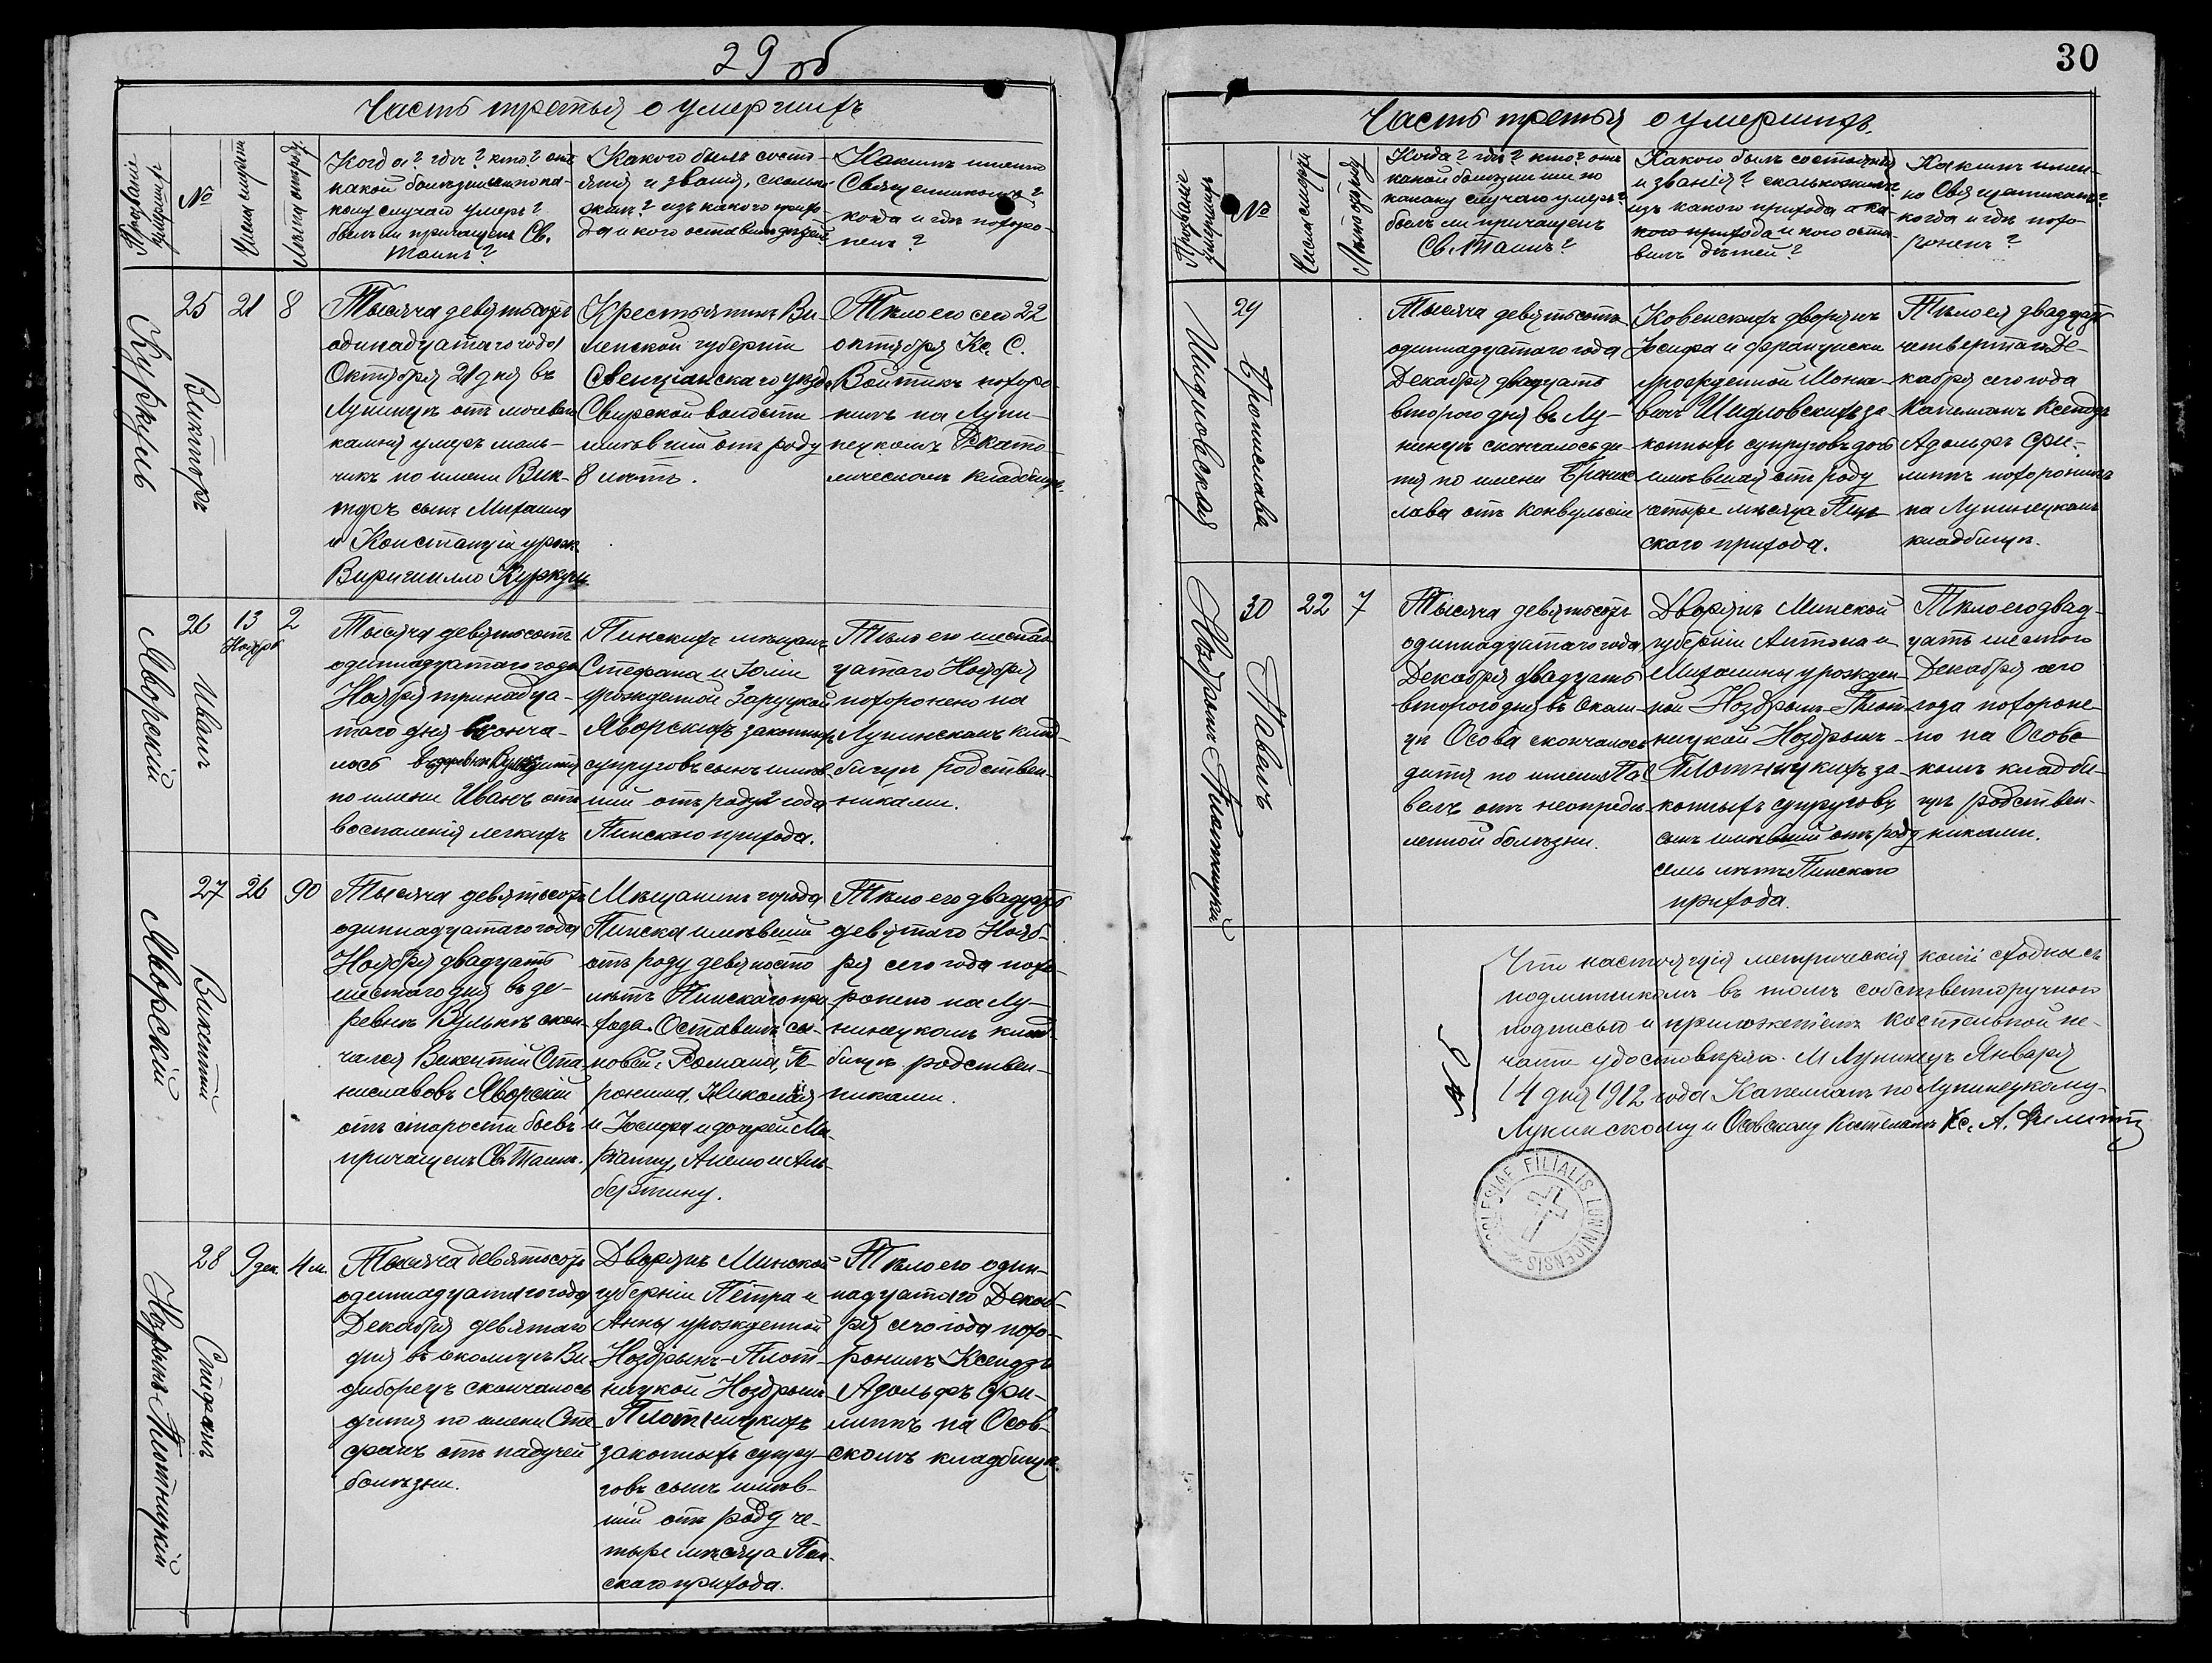 29 об
Часть третья о умершихъ
№
Числа смерти
Когда? гдѣ? кто? отъ
какой болѣзни или по ка-
кому случаю умеръ?
былъ ли причащенъ Св.
Таинъ?
Какого былъ состо-
янія и званія, сколько
жилъ? изъ какого прихо-
да и кого оставилъ дѣтей
Какимъ именно
Священникомъ?
когда и гдѣ похоро-
ненъ?
25
21
8
Викторъ
Тысяча девятьсотъ
одинадцатаго года
Октября 21 дня въ
Лунинцѣ отъ мочеваго
камня умеръ маль-
чикъ по имени Вик-
торъ сынъ Михаила
и Констанціи урож.
Крестьянинъ Ви-
ленской губерніи
Свенцянскаго уѣзда
Свирской волости
имѣвшій отъ роду
8 лѣтъ.
Тѣло его сего 22
октября Кс. С.
Войтикъ похоро-
нилъ на Луни-
нецкомъ Р. като-
лическомъ кладбищѣ.
Яворскій
26
Иванъ
13
Ноября
2
Тысяча девятьсотъ
одиннадцатаго года
Ноября тринадца-
таго дня сконча-
лось
по имени Иванъ отъ
воспаленія легкихъ
Пинскихъ мѣщанъ
Стефана и Юліи
урожденной Заруцкой
Яворскихъ законныхъ
супруговъ сынъ имѣв-
шій отъ роду 2 года
Пинскаго прихода.
Тѣло его шестнад-
цатаго Ноября
похоронено на
Лунинскомъ клад-
бищѣ родствен-
никами.
Яворскій
27
Викентій
26
90
Тысяча девятьсотъ
одиннадцатаго года
Ноября двадцать
шестого дня въ де-
ревнѣ Вулькѣ скон-
чался Викентій Ста-
ниславовъ Яворскій
отъ старости бывъ
причащенъ Св. Таинъ.
Мѣщанинъ города
Пинска имѣвшій
отъ роду девяносто
лѣтъ Пинскаго при-
хода. Оставилъ сы-
новей: Романа, Іе-
ронима, Николая
и Іосифа и дочерей Ма-
ріанну, Анелю и Аль-
бертину.
Тѣло его двадцать
девятаго Нояб-
ря сего года похо-
ронено на Лу-
нинецкомъ клад-
бищѣ родствен-
никами.
Ноздринъ-Плотницкій
28
Стефанъ
9 дек.
4 м.
Тысяча девятьсотъ
одиннадцатаго года
Декабря девятаго
дня въ околицѣ Ви-
диборецъ скончалось
дитя по имени Сте-
фанъ отъ падучей
болѣзни.
Дворянъ Минской
губерніи Петра и
Анны урожденной
Ноздринъ-Плот-
ницкой Ноздринъ-
Плотницкихъ
законныхъ супру-
говъ сынъ имѣв-
шій отъ роду че-
тыре мѣсяца Пин-
скаго прихода.
Тѣло его один-
надцатаго Декаб-
ря сего года похо-
ронилъ Ксендзъ
Адольфъ Фи-
липпъ на Осов-
скомъ кладбищѣ.
30
Часть третья о умершихъ.
№
Числа смерти
Когда? гдѣ? кто? отъ
какой болѣзни или по
какому случаю умеръ?
былъ ли причащенъ
Св. Таинъ?
Какого былъ состоянія
и званія? сколько жилъ?
изъ какого прихода и ка-
кого прихода и кого оста-
вилъ дѣтей?
Какимъ имен-
но Священникомъ?
когда и гдѣ похо-
роненъ?
Шидловская
29
Бронислава
Тысяча девятьсотъ
одиннадцатаго года
Декабря двадцать
второго дня въ Лу-
нинцѣ скончалось ди-
тя по имени Брони-
слава отъ конвульсіи
Ковенскихъ дворянъ
Іосифа и Франциски
урожденной Монке-
вичъ Шидловскихъ за-
конныхъ супруговъ дочь
имѣвшая отъ роду
четыре мѣсяца Пин-
скаго прихода.
Тѣло ея двадцать
четвертаго Де-
кабря сего года
Капеланъ Ксендзъ
Адольфъ Фи-
липпъ похоронилъ
на Лунинецкомъ
кладбищѣ.
Ноздринъ-Плотницкій
30
Павелъ
22
7
Тысяча девятьсотъ
одиннадцатаго года
Декабря двадцать
второго дня въ околи-
цѣ Осова скончалось
дитя по имени Па-
велъ отъ неопредѣ-
ленной болѣзни.
Дворянъ Минской
губерніи Антона и
Михалины урожден-
ной Ноздринъ-Плот-
ницкой Ноздринъ-
Плотницкихъ за-
конныхъ супруговъ
сынъ имѣвшій отъ роду
семь лѣтъ Пинскаго
прихода.
Тѣло его двад-
цать шестого
Декабря сего
года похороне-
но на Осовс-
комъ кладби-
щѣ родствен-
никами.
Что настоящія метрическія копіи сходны съ
подлинникомъ въ томъ собственноручною
подписью и приложеніемъ костельной пе-
чати удостовѣряю. М. Лунинецъ Января
14 дня 1912 года Капеланъ по Лунинецкому,
Лунинскому и Осовскому Костеламъ Кс. А. Филиппъ
ECCLESIAE FILIALIS LUNINCENSIS